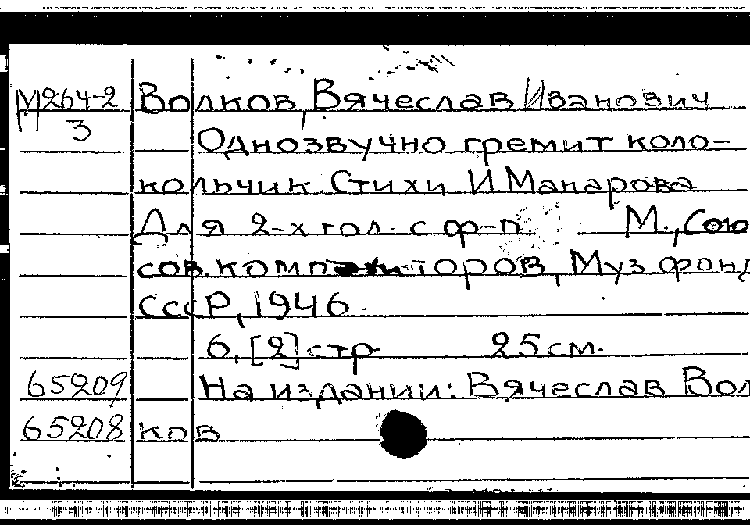 М264-2 Волков, Вячеслав Иванович
3 Однозвучно гремит коло-
кольчик. Стихи И. Макарова
Для 2-х гол. с ф-п. М., Сою
сов. композиторов, Муз фонд
СССР, 1946.
6, [2] стр. 25 см.
65209 На издании: Вячеслав Вол
65208 ков